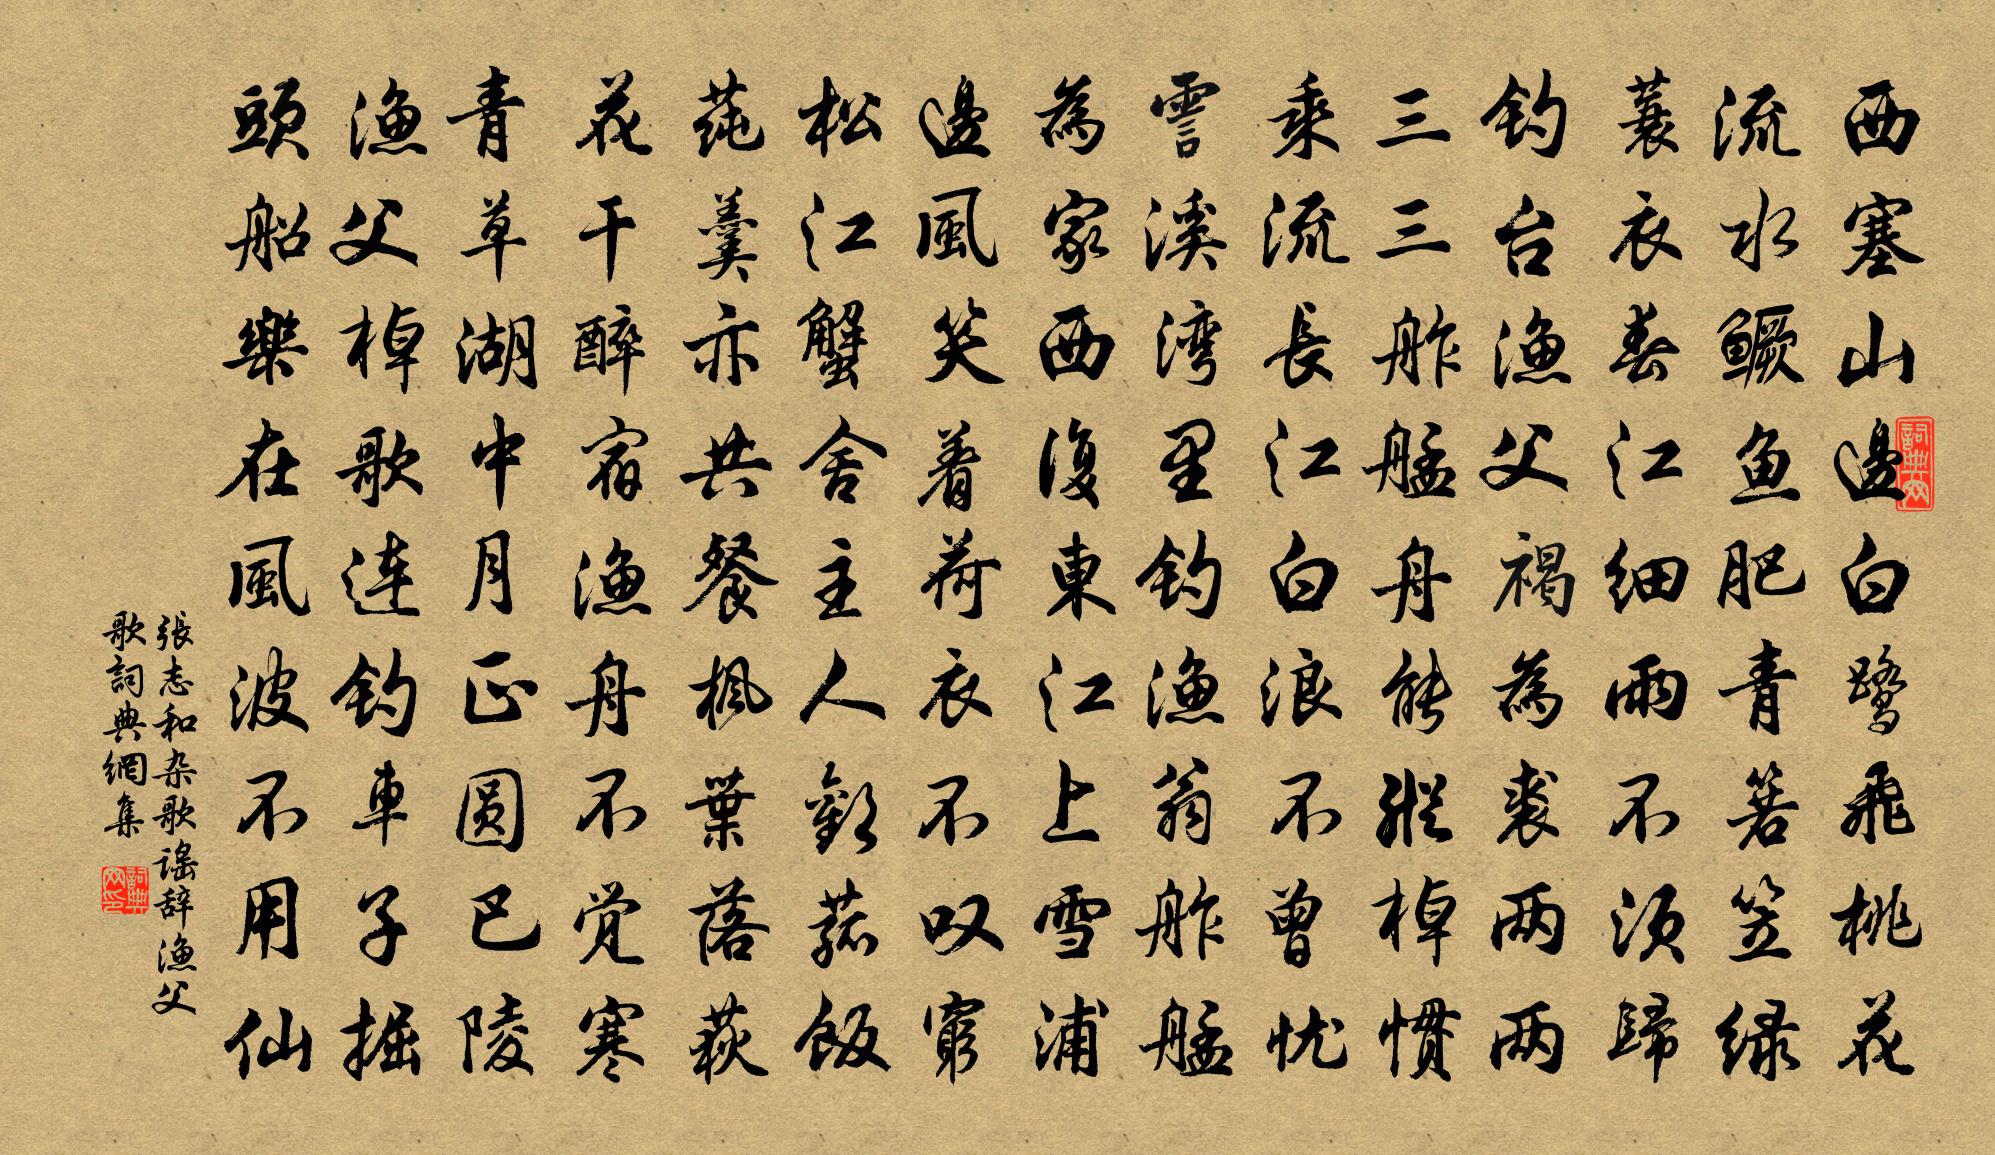 西塞山邊白鷺飛桃花
流水鳜魚肥青箬笠绿
蓑衣春江细雨不须歸
钓台漁父褐為裘两两
三三舴艋舟能縱棹慣
乘流長江白浪不曾忧
霅溪湾里钓漁翁舴艋
為家西復東江上雪浦
邊風笑着荷衣不叹窮
松江蟹舍主人歡菰饭
莼羹亦共餐楓葉落荻
花干醉宿漁舟不觉寒
青草湖中月正圆巴陵
漁父棹歌连钓車子掘
頭船樂在風波不用仙
張志和杂歌谣辞漁父
歌詞典網集
詞典网
詞典网印